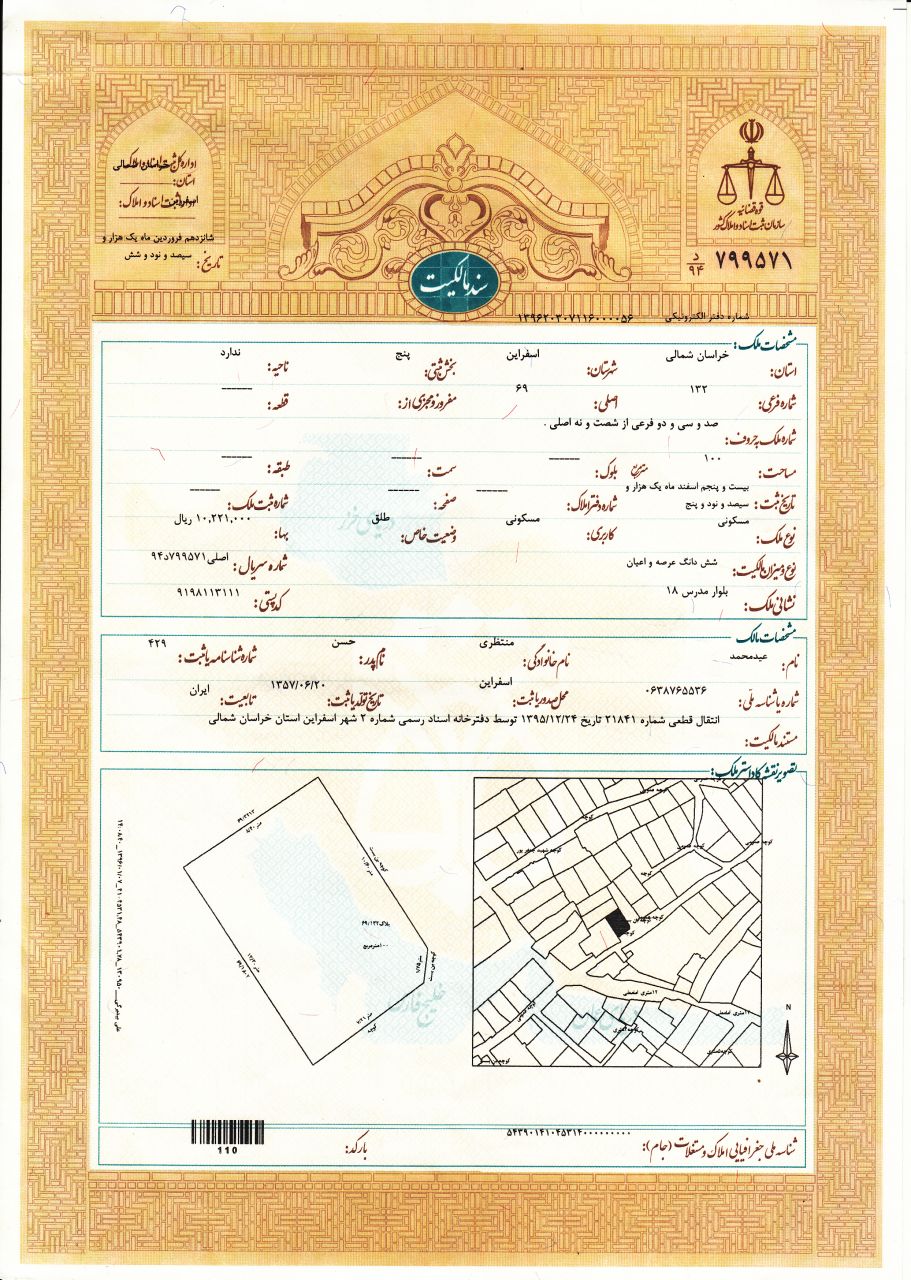 اداره کل ثبت اسناد و املاک
خراسان شمالی
استان:
اسفراین
ثبت اسناد و املاک:
شانزدهم فروردین ماه یک هزار و
سیصد و نود و شش
تاریخ:
قوه قضائیه
سازمان ثبت اسناد و املاک کشور
۷۹۹۵۷۱ د ۹۴
سند مالکیت
شماره دفتر الکترونیکی ۱۳۹۶۲۰۳۰۷۱۱۶۰۰۰۰۵۶
مشخصات ملک:
استان: خراسان شمالی شهرستان: اسفراین بخش ثبتی: پنج ناحیه: ندارد
شماره فرعی: ۱۳۲ اصلی: ۶۹ مفروز و مجزی از: قطعه: ------
شماره ملک به حروف: صد و سی و دو فرعی از شصت و نه اصلی .
مساحت: ۱۰۰ مترمربع بلوک: ------ سمت: ------ طبقه: ------
تاریخ ثبت: بیست و پنجم اسفند ماه یک هزار و سیصد و نود و پنج شماره دفتر املاک: ------ صفحه: ------ شماره ثبت ملک: ------
نوع ملک: مسکونی کاربری: مسکونی وضعیت خاص: طلق بها: ۱۰,۲۲۱,۰۰۰ ریال
نوع و میزان مالکیت: شش دانگ عرصه و اعیان شماره سریال: اصلی۷۹۹۵۷۱د۹۴
نشانی ملک: بلوار مدرس ۱۸ کدپستی: ۹۱۹۸۱۱۳۱۱۱
مشخصات مالک
نام: عیدمحمد نام خانوادگی: منتظری نام پدر: حسن شماره شناسنامه یا ثبت: ۴۲۹
شماره یا شناسه ملی: ۰۶۳۸۷۶۵۵۳۶ محل صدور یا ثبت: اسفراین تاریخ تولد یا ثبت: ۱۳۵۷/۰۶/۲۰ تابعیت: ایران
مستند مالکیت: انتقال قطعی شماره ۲۱۸۴۱ تاریخ ۱۳۹۵/۱۲/۲۴ توسط دفترخانه اسناد رسمی شماره ۲ شهر اسفراین استان خراسان شمالی
تصویر نقشه کاداستر ملک:
کوچه
کوچه شهید جمهور پور
کوچه
کوچه بن بست
کوچه
N
کوچه بن بست
پلاک ۶۹/۱۳۲
۱۰۰مترمربع
کوچه بن بست
کوچه
خلیج فارس
دریای خزر
شناسه ملی جغرافیایی املاک و مستغلات (جام): ۵۴۳۹۰۱۴۱۰۴۵۳۱۴۰۰۰۰۰۰۰۰۰
بارکد:
110